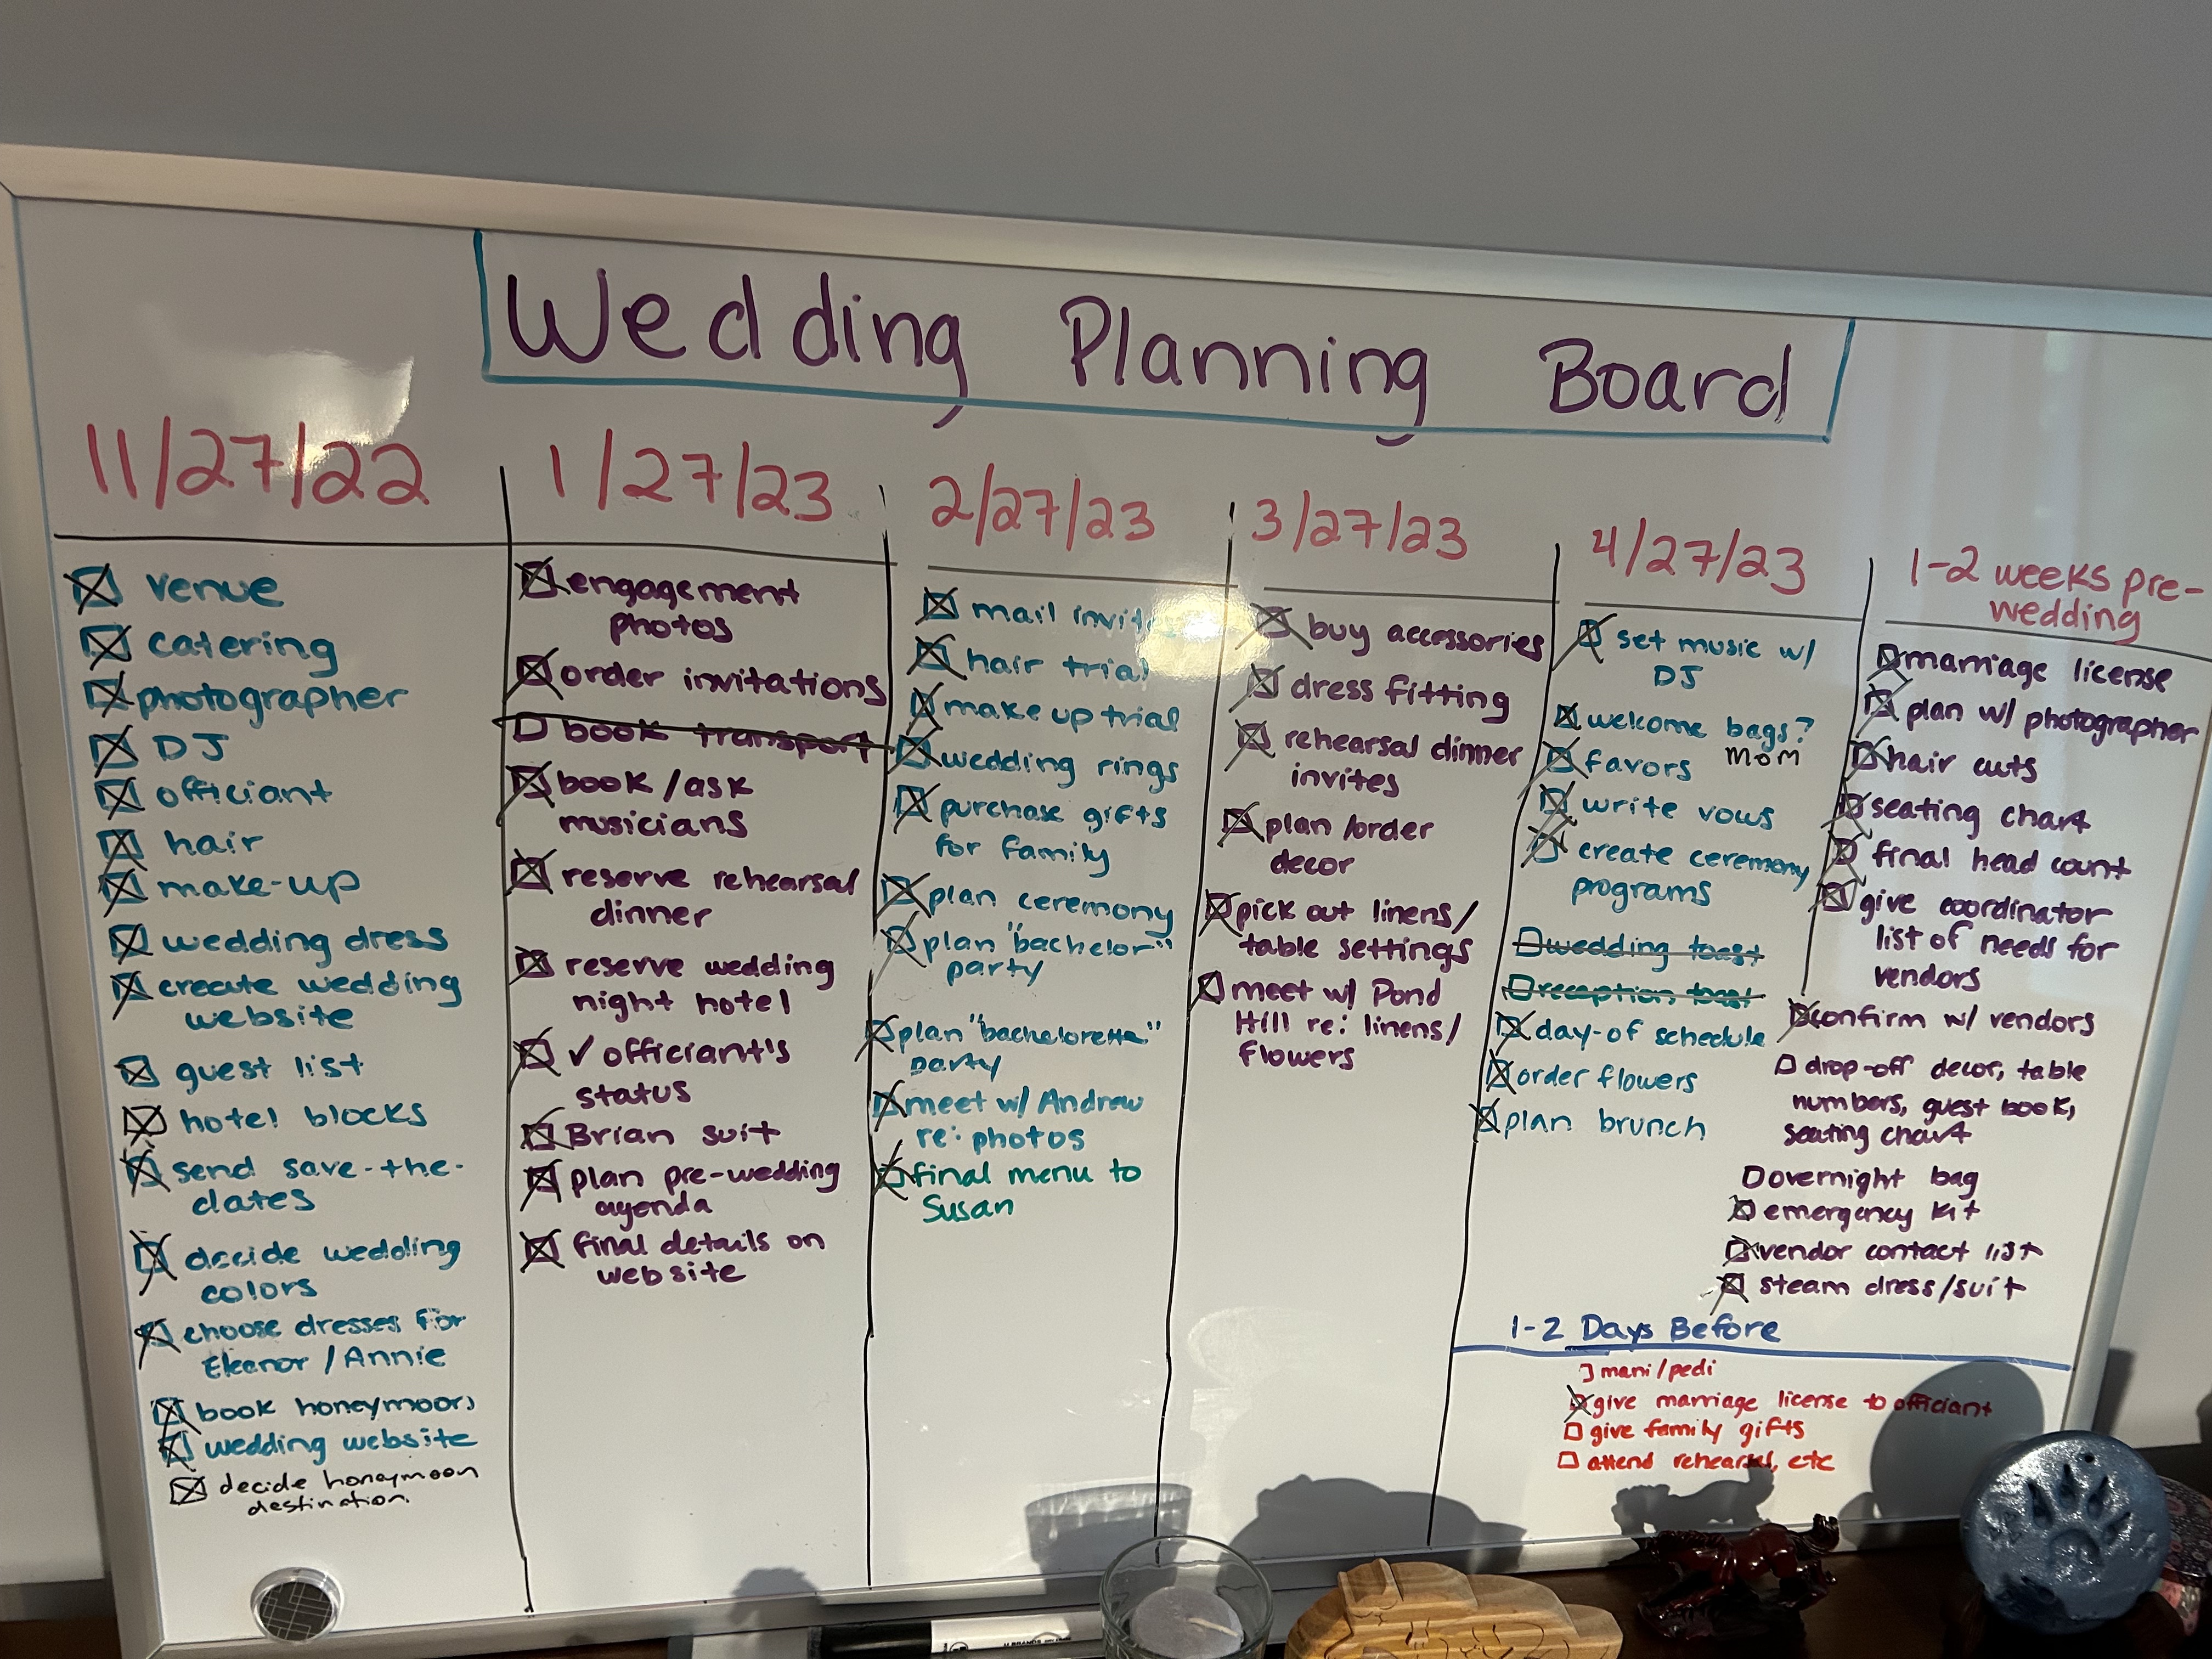 Wedding Planning Board
11/27/22
venue
catering
photographer
DJ
officiant
hair
make-up
wedding dress
create wedding
website
guest list
hotel blocks
send save-the-
dates
decide wedding
colors
choose dresses for
Eleanor/Annie
book honeymoon
wedding website
decide honeymoon
destination
1/27/23
engagement
photos
order invitations
book transport
book/ask
musicians
reserve rehearsal
dinner
reserve wedding
night hotel
✓ officiant's
status
Brian suit
plan pre-wedding
agenda
final details on
website
2/27/23
mail
hair trial
make up trial
wedding rings
purchase gifts
for family
plan ceremony
plan "bachelor"
party
plan "bachelorette"
party
meet w/ Andrew
re: photos
final menu to
Susan
3/27/23
buy accessories
dress fitting
rehearsal dinner
invites
plan/order
decor
pick out linens/
table settings
meet w/ Pond
Hill re: linens/
flowers
4/27/23
set music w/
DJ
welcome bags?
mom
favors
write vows
create ceremony
programs
wedding toast
reception toast
day-of schedule
order flowers
plan brunch
1-2 weeks pre-
wedding
marriage license
plan w/ photographer
hair cuts
seating chart
final head count
give coordinator
list of needs for
vendors
confirm w/ vendors
drop-off decor, table
numbers, guest book,
seating chart
overnight bag
emergency kit
vendor contact list
steam dress/suit
1-2 Days Before
mani/pedi
give marriage license to officiant
give family gifts
attend rehearsal, etc